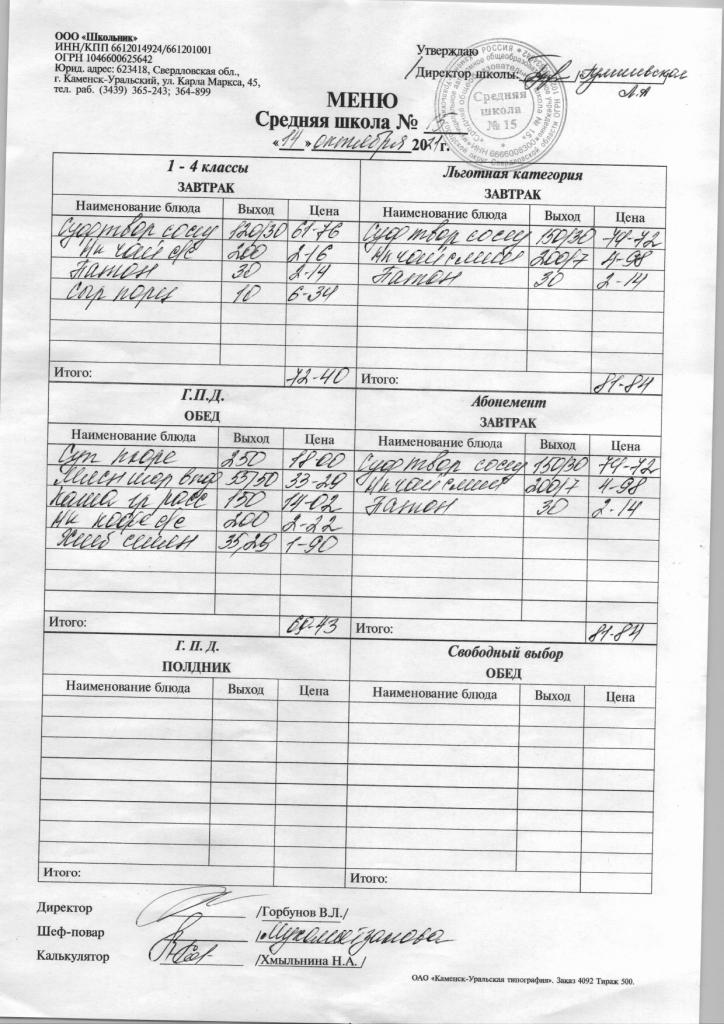 ООО «Школьник»
ИНН/КПП 6612014924/661201001
ОГРН 1046600625642
Юрид. адрес: 623418, Свердловская обл.,
г. Каменск-Уральский, ул. Карла Маркса, 45,
тел. раб. (3439) 365-243; 364-899
Утверждаю
Директор школы:
Средняя
школа
№ 15
МЕНЮ
Средняя школа № 15
«14» октября 2021г.
1 - 4 классы
ЗАВТРАК
Наименование блюда Выход Цена
Суфл твор сосиу 120/30 61-76
Нк чай с/с 200 2-16
Батон 30 2-14
Сыр порц 10 6-34
Итого: 72-40
Льготная категория
ЗАВТРАК
Наименование блюда Выход Цена
твор 150/30 74-72
Нк чай с лим 200/7 4-98
Батон 30 2-14
Итого: 81-84
Г.П.Д.
ОБЕД
Наименование блюда Выход Цена
Суп пюре 250 18 00
55/50 33-29
Каша гр расс 150 14-02
Нк кофе с/с 200 2-22
Хлеб 35,29 1-90
Итого: 69-43
Абонемент
ЗАВТРАК
Наименование блюда Выход Цена
твор 150/30 74-72
Нк чай с лим 200/7 4-98
Батон 30 2-14
Итого: 81-84
Г. П. Д.
ПОЛДНИК
Наименование блюда Выход Цена
Итого:
Свободный выбор
ОБЕД
Наименование блюда Выход Цена
Итого:
Директор /Горбунов В.Л./
Шеф-повар
Калькулятор /Хмыльнина Н.А. /
ОАО «Каменск-Уральская типография». Заказ 4092 Тираж 500.